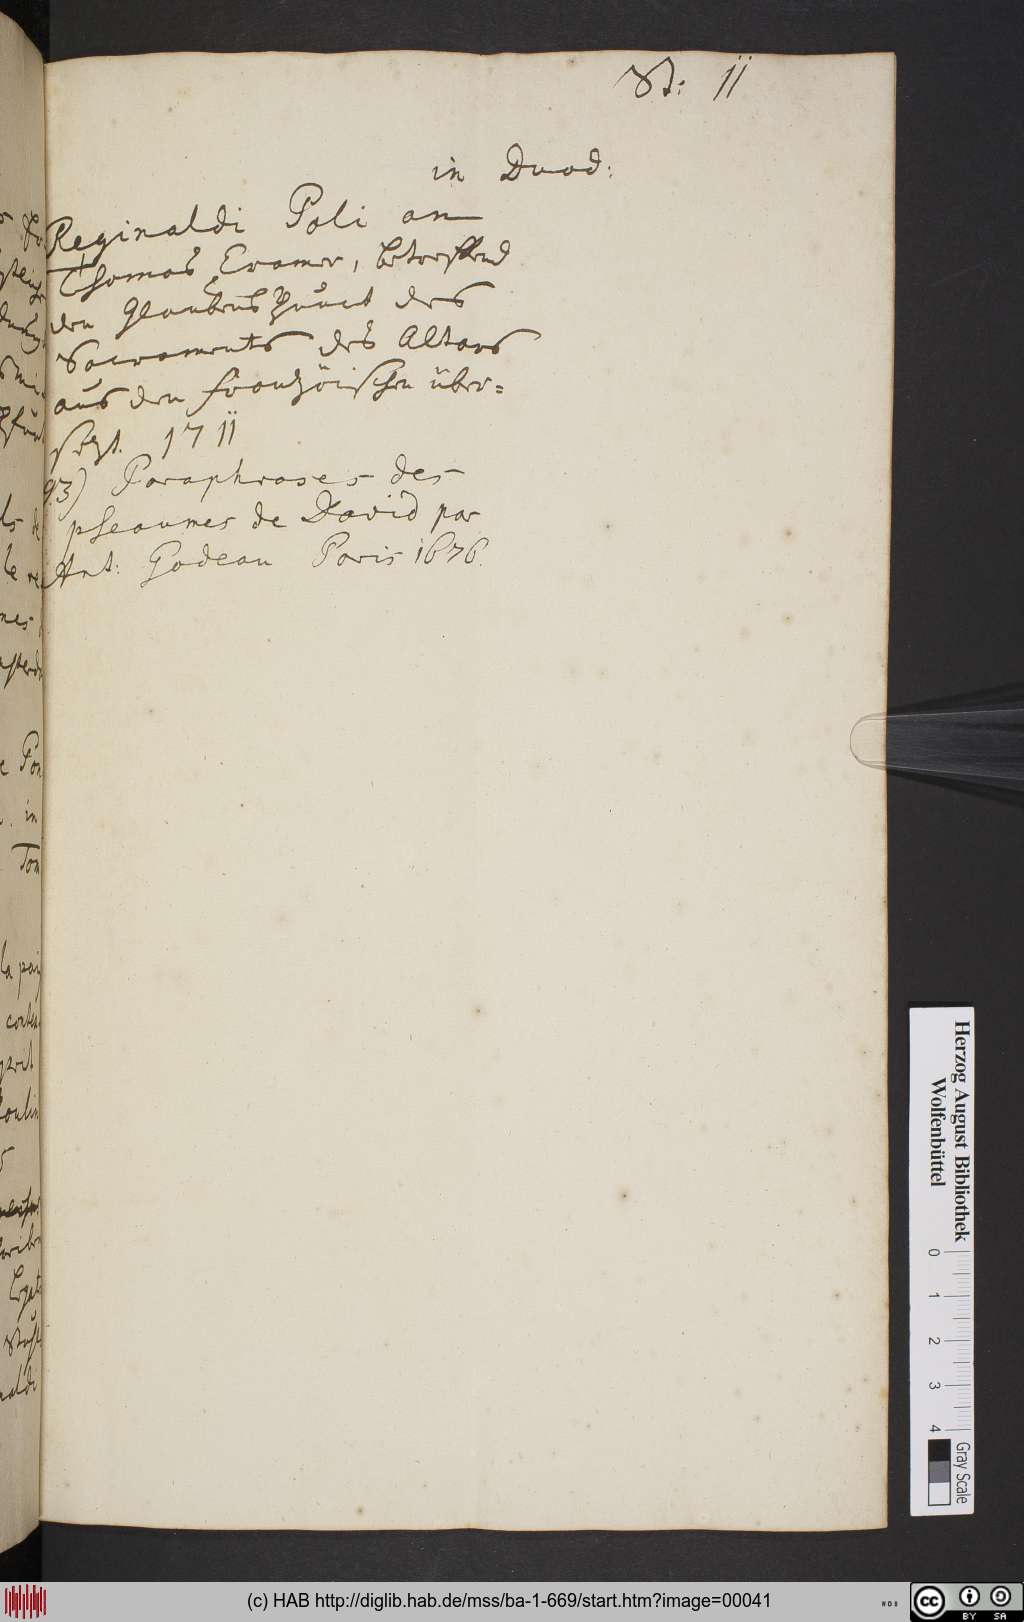 St: 11
in Duod:
Reginaldi Poli an
Thomas Cramer, betreffend
den Glaubens Punct des
Sacraments des Altars
aus den französischen über=
setzt. 1711
93) Paraphrases des
pseaumes de David par
Ant: Godeau Paris 1676.
Tom
la paix
Herzog August Bibliothek
Wolfenbüttel
0 1 2 3 4
Gray Scale
(c) HAB http://diglib.hab.de/mss/ba-1-669/start.htm?image=00041
BY SA